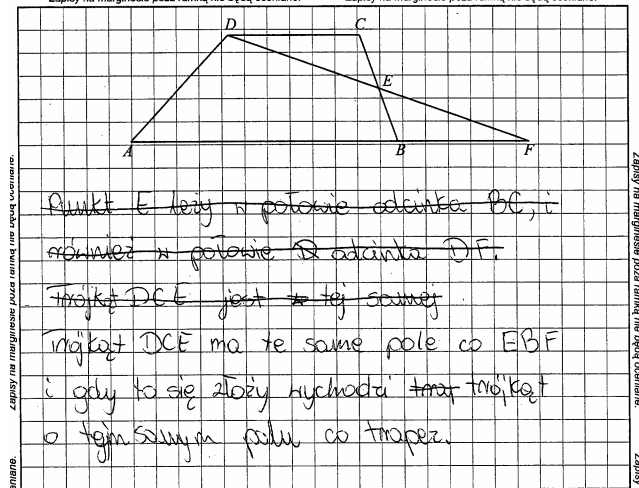 Zapisy na marginesie poza ramką nie będą oceniane. Zapisy na marginesie poza ramką nie będą oceniane.
D C
E
A B F
Punkt E leży w połowie odcinka BC, i
również w połowie odcinka DF.
Trójkąt DCE jest tej samej
Trójkąt DCE ma te same pole co EBF
i gdy to się złoży wychodzi trójkąt
o tejm samym polu co trapez.
Zapisy na marginesie poza ramką nie będą oceniane.
Zapisy na marginesie poza ramką nie będą oceniane.
eniane.
Zapisy